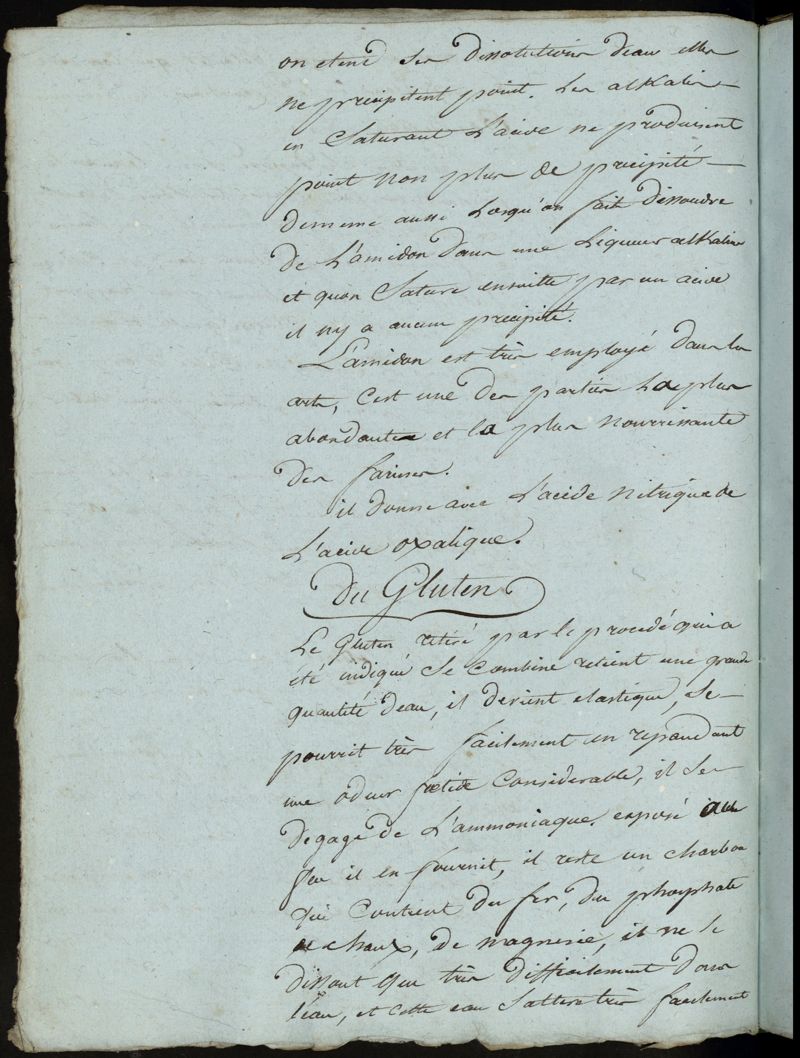 on etend ses dissolutions d'eau elles
ne precipitent point. Les alkalis
en Saturant L'acide ne produisent
point non plus de precipité
dememe aussi Lorsqu'on fait dissoudre
de L'amidon dans une Liqueur alkaline
et quon Sature ensuitte par un acide
il ny a aucun precipité.
L'amidon est très employé dans les
arts, C'est une des parties La plus
abondante et la plus nourrissante
des farines.
il donne avec L'acide nitrique de
L'acide oxalique.
Du Gluten
Le Gluten retiré par le procedé qui a
été indiqué Se combine retient une grande
quantité d'eau, il devient elastique, Se
pourrit très facilement en repandant
une odeur foetide Considerable, il Se
degage de L'ammoniaque. exposé au
feu il en fournit, il reste un charbon
qui Contient du fer, du phosphate
de chaux, de magnesie, il ne se
dissout que très difficilement dans
l'eau, et cette eau S'altere très facilement